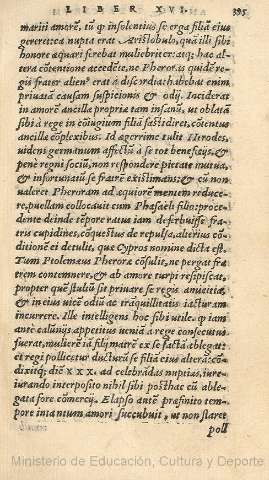 LIBER XVI. 395
mariti amorē, tū ꝙ insolentius se erga filiā eius
gereret, cæ nupta erat Aristobulo, quā illi sibi
honore æquari ferebat muliebriter: atq; hac al-
tera cōtentione accedēte, ne Pherorás quidē re-
gis frater alien⁹ erat à discordia: habebat enim
priuatā causam suspicionis & odij. Inciderat
in amorē ancillæ propriæ tam insanū, ut oblatā
sibi à rege in cōiugium filiā fastidiret, cōtentus
ancillæ cōplexibus. Id ægerrime tulit Herodes,
uidens germanum affectū à se tot beneficijs, &
penè regni sociū, non respondere pietate mutua,
& infortunatū se fratrē existimans: & cū non
ualeret Pheroram ad æquiorē mentem reduce-
re, puellam collocauit cum Phasaeli filio: proce-
dente deinde tēpore ratus iam deferbuisse fra-
tris cupidines, cōquestus de repulsa, alterius cō-
ditionē ei detulit, quæ Cypros nomine dicta est.
Tum Ptolemæus Pheroræ cōsulit, ne pergat fra-
trem contemnere, & ab amore turpi resipiscat,
propter quē stultū sit priuare se regis amicitia,
& in eius uice odiū ac trāquillitatis iacturam
incurrere. Ille intelligens hoc sibi utile. ꝙ iam
antè calūnijs appetitus ueniā à rege consecutus
fuerat, mulierē iā filij matrē ex se factā ablegat:
et regi pollicetur ducturū se filiā eius alterā: cō-
dixitq́; diē XXX. ad celebrādas nuptias, iure-
iurando interposito nihil sibi posthac cū able-
gata fore cōmercij. Elapso autē præfinito tem-
pore in tantum amori succubuit, ut non staret
poll
Ministerio de Educación, Cultura y Deporte